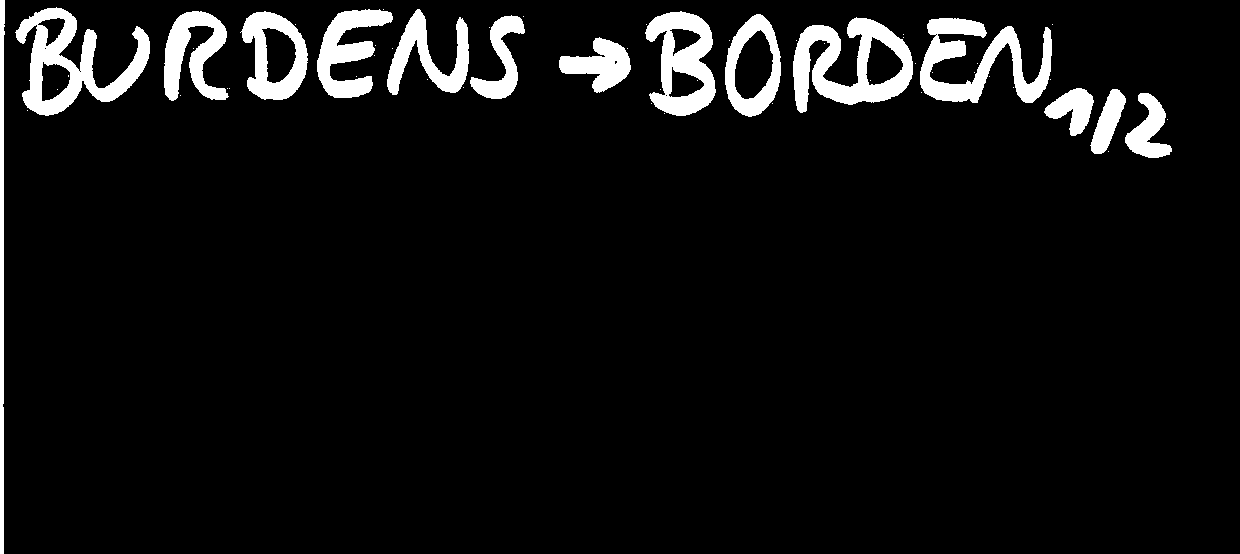 BURDENS → BORDEN 1/2